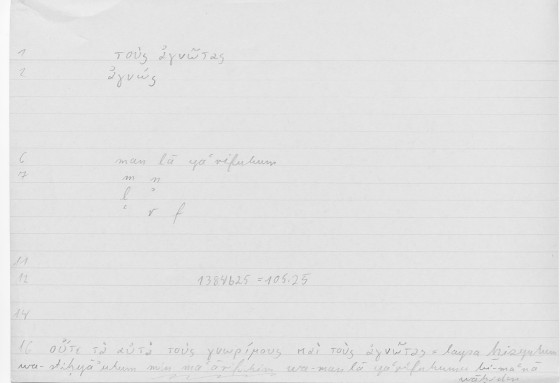 1 τοὺς ἀγνῶτας
2 ἀγνώς
6 man lā yaʿrifuhum
7 m n
l ʾ
ʿ r f
11
12 1384625 = 105.25
14
16 οὔτε τὰ αὐτὰ τοὺς γνωρίμους καὶ τοὺς ἀγνῶτας = laysa
wa- min wa-man lā yaʿrifuhumu bi-maʿnā
wāḥidin